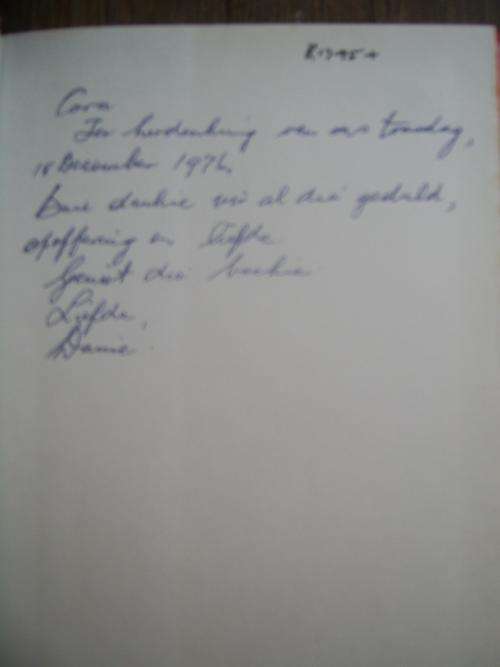 R13-95
Cara
Ter herdenking van ons troudag,
18 December 1976,
Baie dankie vir al die geduld,
opoffering en liefde
Geniet die boekie
Liefde,
Danie